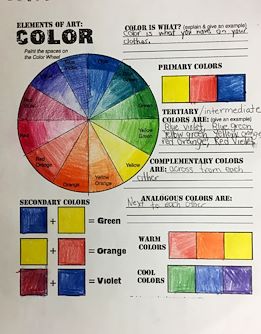 ELEMENTS OF ART:
COLOR
Paint the spaces on
the Color Wheel
COLOR IS WHAT? (explain & give an example)
Color is what you have on your
clothes.
PRIMARY COLORS
TERTIARY/intermediate
COLORS ARE: (give an example)
Blue violet, Blue green
Yellow green Yellow orange
red orange, Red Violet
COMPLEMENTARY COLORS
ARE: across from each
other
Green
Yellow
Green
Yellow
Orange
Red
Orange
Red
SECONDARY COLORS
+ = Green
+ = Orange
+ = Violet
ANALOGOUS COLORS ARE:
Next to each other
WARM
COLORS
COOL
COLORS